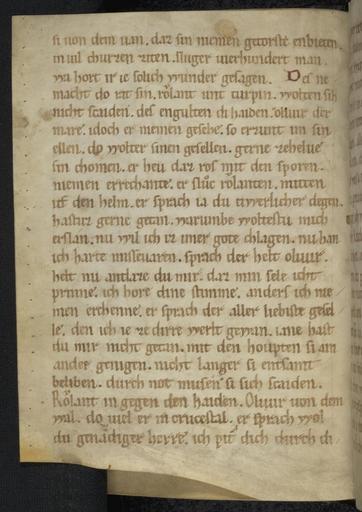 si von dem uan. daz sin niemen getorste enbieten.
in uil churzen ziten. sluger uierhundert man.
wa hort ir ie solich wunder gesagen. Des ne
macht do rat sin. rolant unt turpin. wolten sih
nicht scaiden. des engulten di haiden. oliuir der
mare. idoch er niemen gesche. so erzunt im sin
ellen. do wolter sinen gesellen. gerne zehelue
sin chomen. er heu daz ros mit den sporen.
niemen errechante. er sluc rolanten. mitten
uf den helm. er sprach ia du tiwerlicher degen.
hastuz gerne getan. warumbe woltestu mich
erslan. nu wil ich iz imer gote chlagen. nu han
ich harte misseuaren. sprach der helt oliuir.
helt nu antlaze du mir. daz min sele icht
prinne. ich hore dine stimme. anders ich nie
men erchenne. er sprach der aller liebiste gesel
le. den ich ie ze dirre werlt gewan. iane hast
du mir nicht getan. mit den houpten si an
ander genigen. nicht langer si entsamt
beliben. durch not musen si sich scaiden.
Rolant in gegen den haiden. Oliuir uon dem
wal. do uiel er in crucestal. er sprach wol
du genadiger herre. ich pit dich durch di